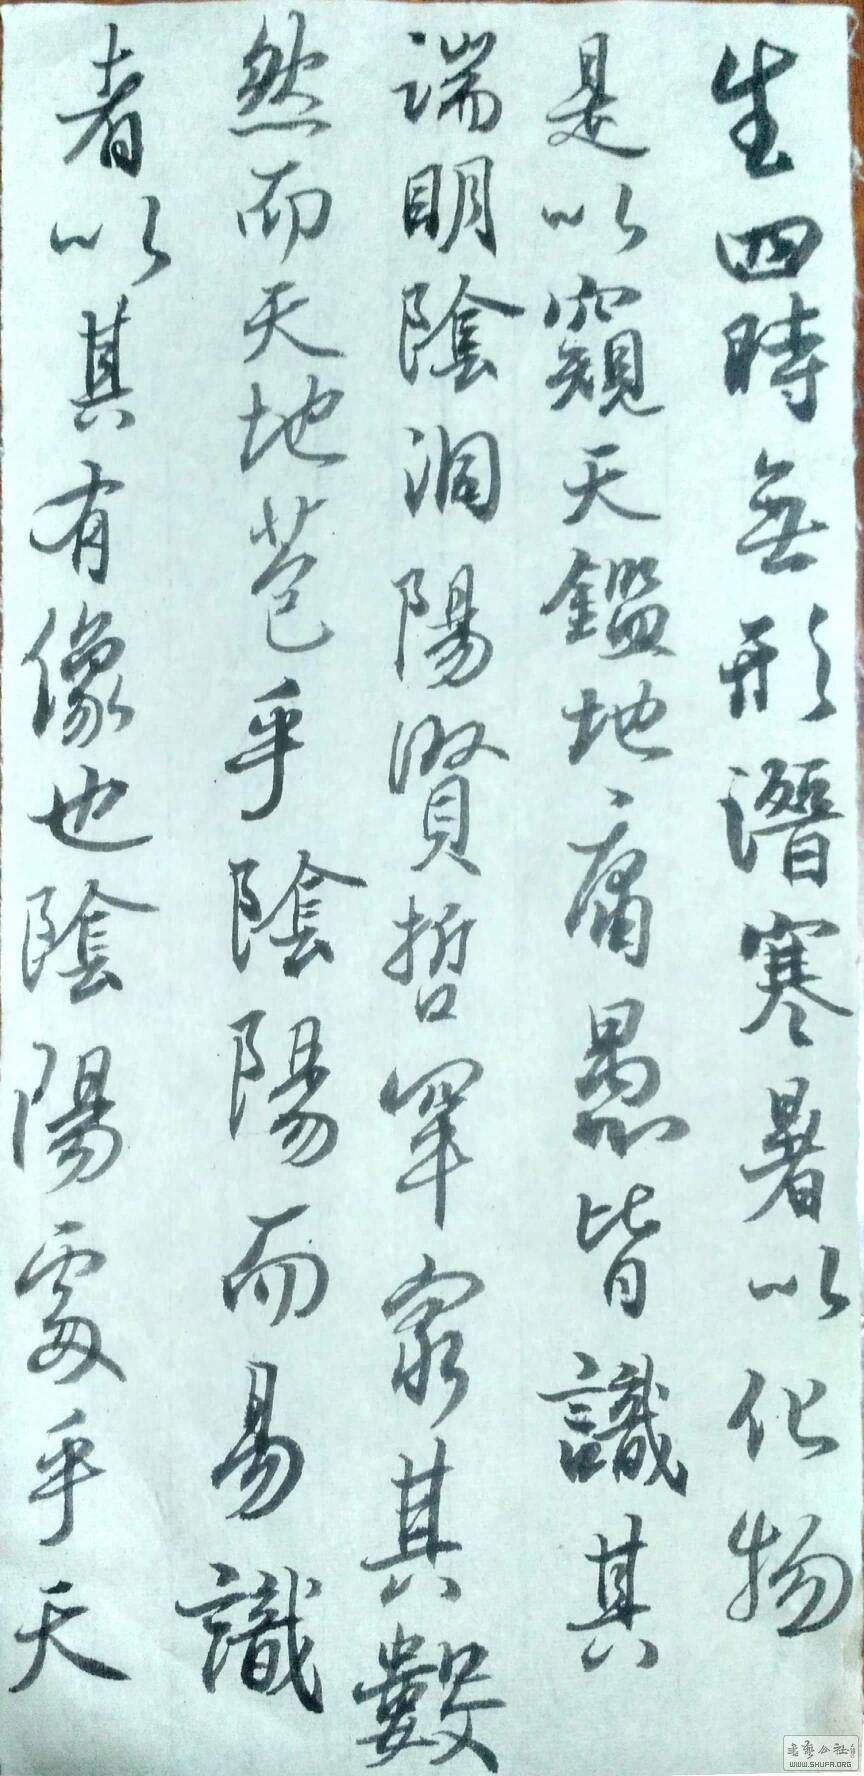 生四時無形潛寒暑以化物
是以窺天鑑地庸愚皆識其
端明陰洞陽賢哲罕窮其數
然而天地苞乎陰陽而易識
者以其有像也陰陽處乎天
书艺公社
WWW.SHUFA.ORG